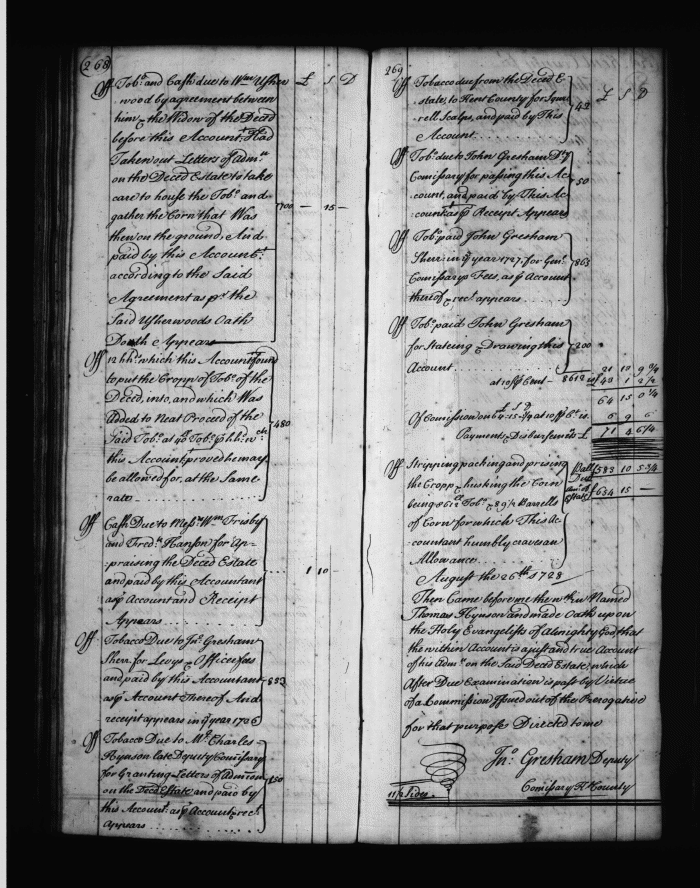 268
Off Tobo. and Cash due to Wm. Usher £ S D
wood by agreement between
him & the Widow of the Deced
before this Account.t Had
Taken out Letters of Adm.n
on the Deced Estate to take
care to house the Tobo. and
gather the Corn that Was 700 — 15 —
then on the ground, And
paid by this Account.t
according to the Said
Agreement as pr. the
Said Usherwoods Oath
Doath Appears
Off 12 hhds. which this Account.t found
to put the Cropp of Tobo. of the
Deced, into, and which Was
Added to Neat Proceed of the
Said Tobo. as 40 Tobo. p hhd. wch. 480
this Account. proved he may
be allowed for, at the Same
rate
Off Cash Due to Messrs. Wm. Frisby
and Fredk. Hanson for Ap-
praising the Deced Estate 1 10 —
and paid by this Accountant
as p Account and Receipt
Appears
Off Tobacco Due to Jno. Gresham
Sherr. for Levys & Officer fees
and paid by this Accountant 853
as p Account Thereof And
receipt appears in ye year 1726
Off Tobacco Due to Mr. Charles
Hynson late Deputy Comissary
for Granting Letters of Admion 150
on the Deced Estate and paid by
this Account: as p Account & rect.
Appears
269
Off Tobacco due from the Deced E- £ S D
state, to Kent County for Squi
rell Scalps, and paid by This 42
Account
Off Tobo. due to John Gresham Dty
Comissary for passing this Ac- 50
count, and paid by This Ac-
count as p Receipt Appears
Off Tobo. paid John Gresham
Sherr: in ye year 1727, for Genl. 1865
Comissarys Fees, as p Account
thereof & rect. appears
Off Tobo. paid John Gresham
for Stateing & Drawing this 200
Account 21 10 9 3/4
at 10/ p Cent - 8612 is 43 1 2 1/2
64 15 0 1/4
Of Comission on £64 : 15 : 0 1/4 at 10 p Ct. is 6 9 6
Payments & Disbursemts. £ 71 4 6 1/4
Off Stripping packing and prising Ball. 583 10 5 3/4
the Cropp & husking the Corn Due
being 8612 Tobo. & 89 1/2 Barrells Estate 654 15 —
of Corn for which This Ac-
countant humbly craves an
Allowance
August the 26th 1728
Then Came before me the within Named
Thomas Hynson and made Oath upon
the Holy Evangelists of Almighty God, that
the within Account is a just and true Account
of his Adm.n on the Said Deced Estate, which
After Due Examination is past by Virtue
of a Commission Issued out of the Prerogative
for that purpose Directed to me
Jno. Gresham Deputy
Comissary Kt. County
11 1/2 Sides.